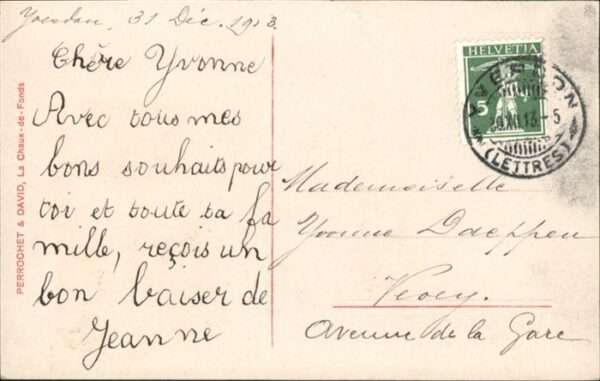 Yverdon, 31 Déc. 1913.
Chère Yvonne
Avec tous mes
bons souhaits pour
toi et toute ta fa
mille, reçois un
bon baiser de
Jeanne
PERROCHET & DAVID, La Chaux-de-Fonds
HELVETIA
5
YVERDON
XII.13-5
(LETTRES)
Mademoiselle
Yvonne Daeppen
Vevey.
Avenue de la Gare